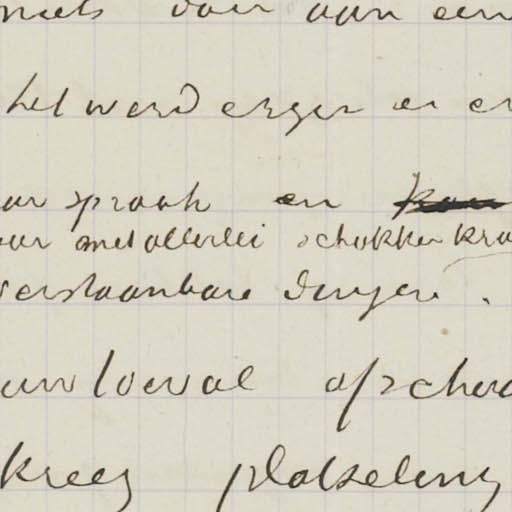 niets van aan een
het werd erger en er
sprak en
met allerlei schokken
verstaanbare dingen.
toeval
kreeg plotseling